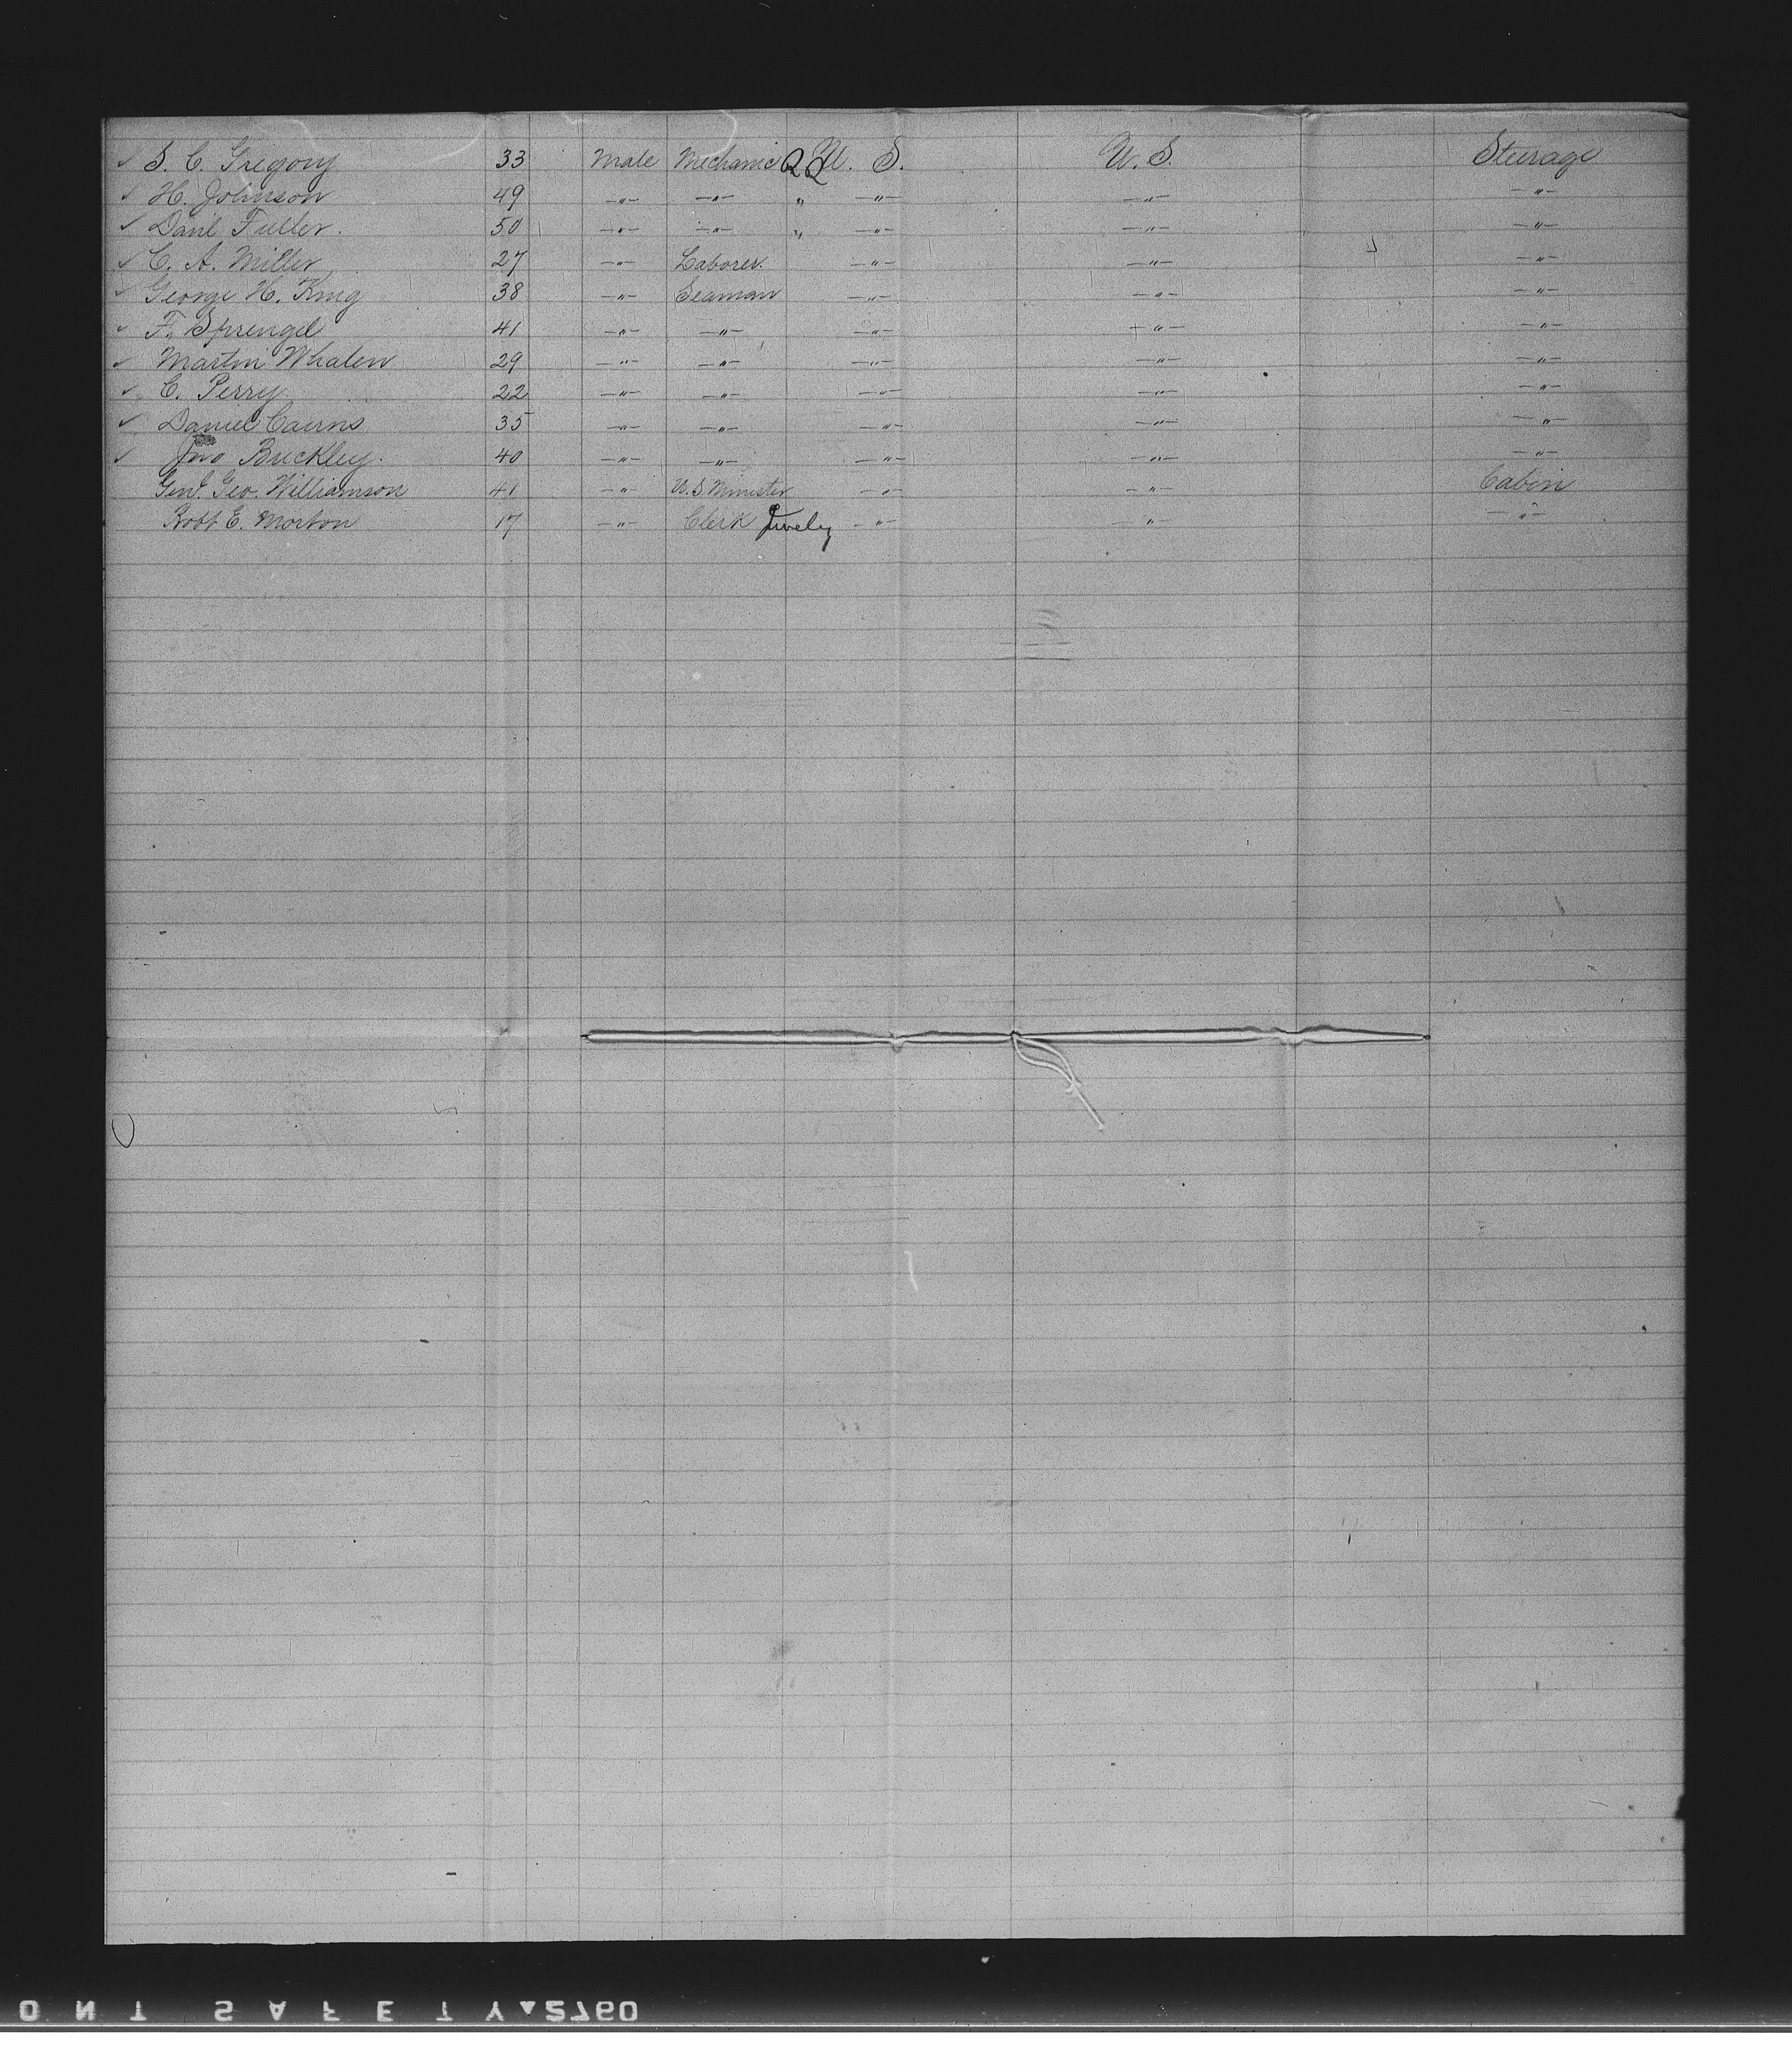 ✓ S. C. Gregory 33 Male Mechanic U. S. U. S. Steerage
✓ H. Johnson 49 -"- -"- " -"- -"- -"-
✓ Danl Fuller. 50 -"- -"- " -"- -"- -"-
✓ C. A. Miller 27 -"- Laborer. -"- -"- -"-
✓ George H. King 38 -"- Seaman -"- -"- -"-
✓ F. Sprengel 41 -"- -"- -"- -"- -"-
✓ Martin Whalen 29 -"- -"- -"- -"- -"-
✓ C. Perry 22 -"- -"- -"- -"- -"-
✓ Daniel Cairns 35 -"- -"- -"- -"- -"-
✓ Jno Buckley. 40 -"- -"- -"- -"- -"-
Genl. Geo. Williamson 41 -"- U.S. Minister -"- -"- Cabin
Robt E. Morton 17 -"- Clerk -"- -"- -"-
ONT SAFETY▲2760